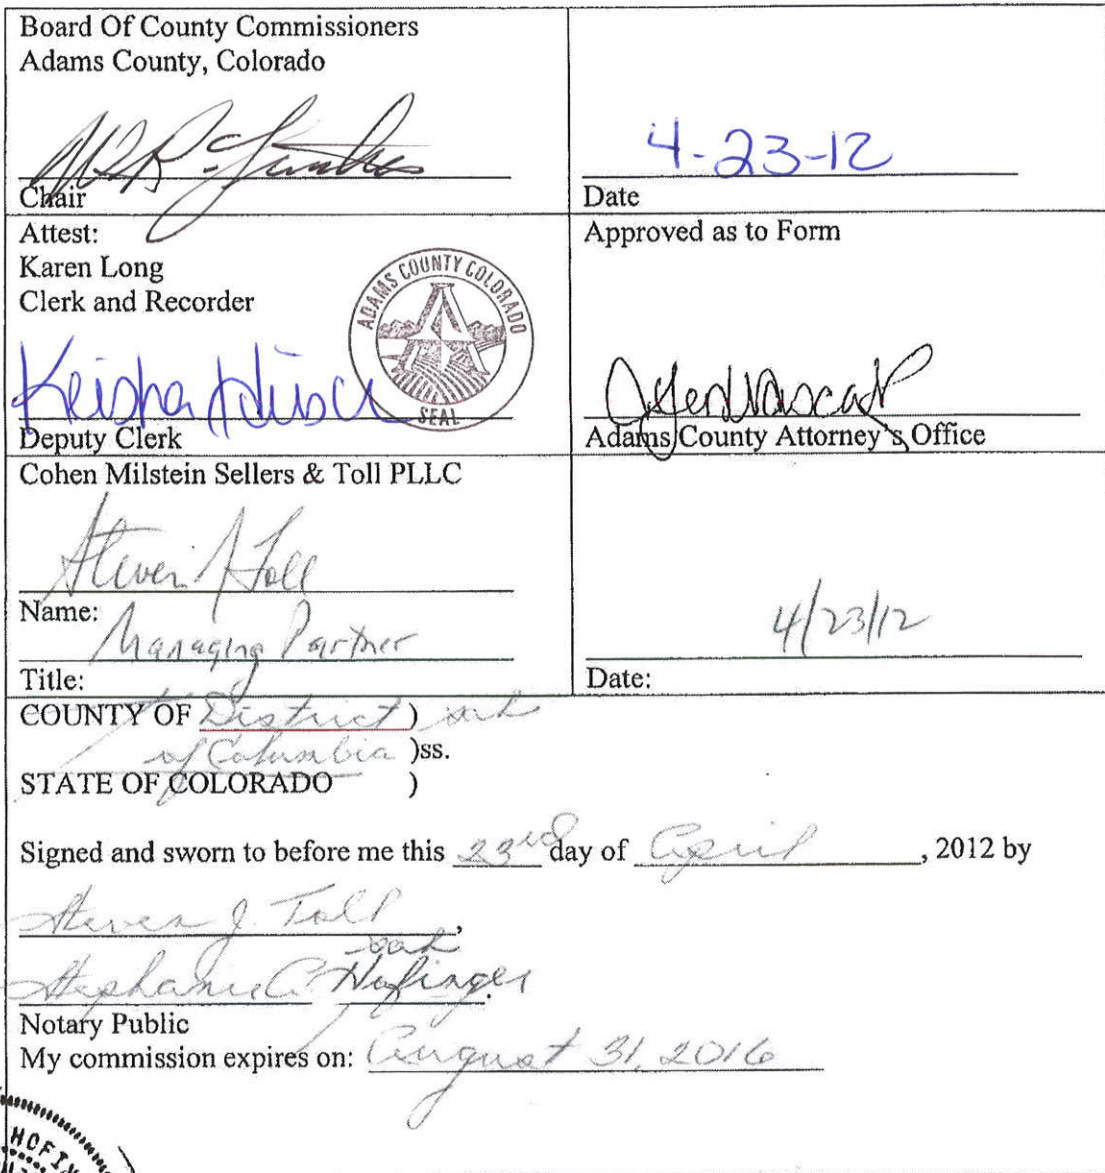 Board Of County Commissioners
Adams County, Colorado
4-23-12
Chair
Date
Attest:
Karen Long
Clerk and Recorder
Approved as to Form
ADAMS COUNTY COLORADO
SEAL
Keisha
Deputy Clerk
Adams County Attorney's Office
Cohen Milstein Sellers & Toll PLLC
Steven J Toll
Name:
Managing Partner
4/23/12
Title:
Date:
COUNTY OF District ) sah
of Columbia )ss.
STATE OF COLORADO )
Signed and sworn to before me this 23rd day of April, 2012 by
Steven J. Toll,
sah
Stephanie A. Hofinger.
Notary Public
My commission expires on: August 31, 2016